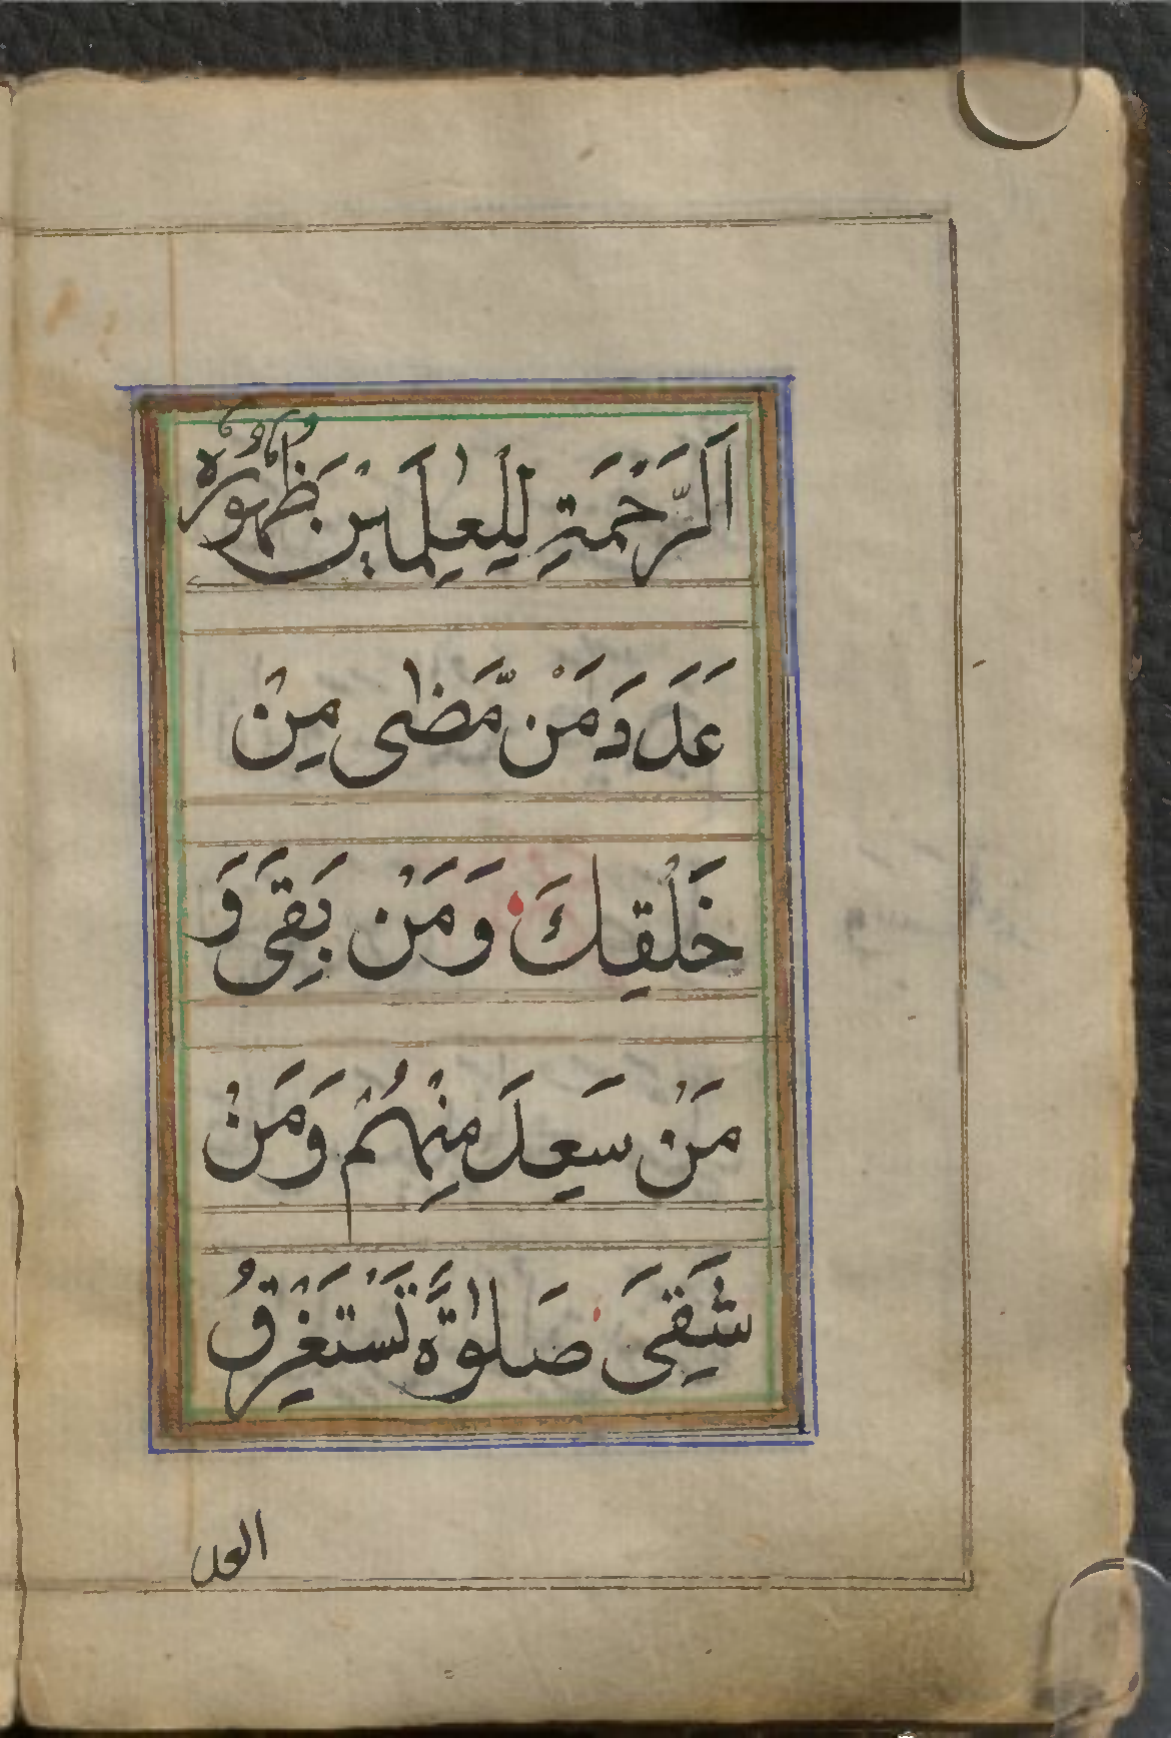 اَلرَّحْمَةِ لِلْعٰلَمِيْنَ ظُهُوْرُهٗ
عَدَدَ مَنْ مَّضٰى مِنْ
خَلْقِكَ وَمَنْ بَقِىَ وَ
مَنْ سَعِدَ مِنْهُمْ وَمَنْ
شَقِىَ صَلٰوةً تَسْتَغْرِقُ
العد